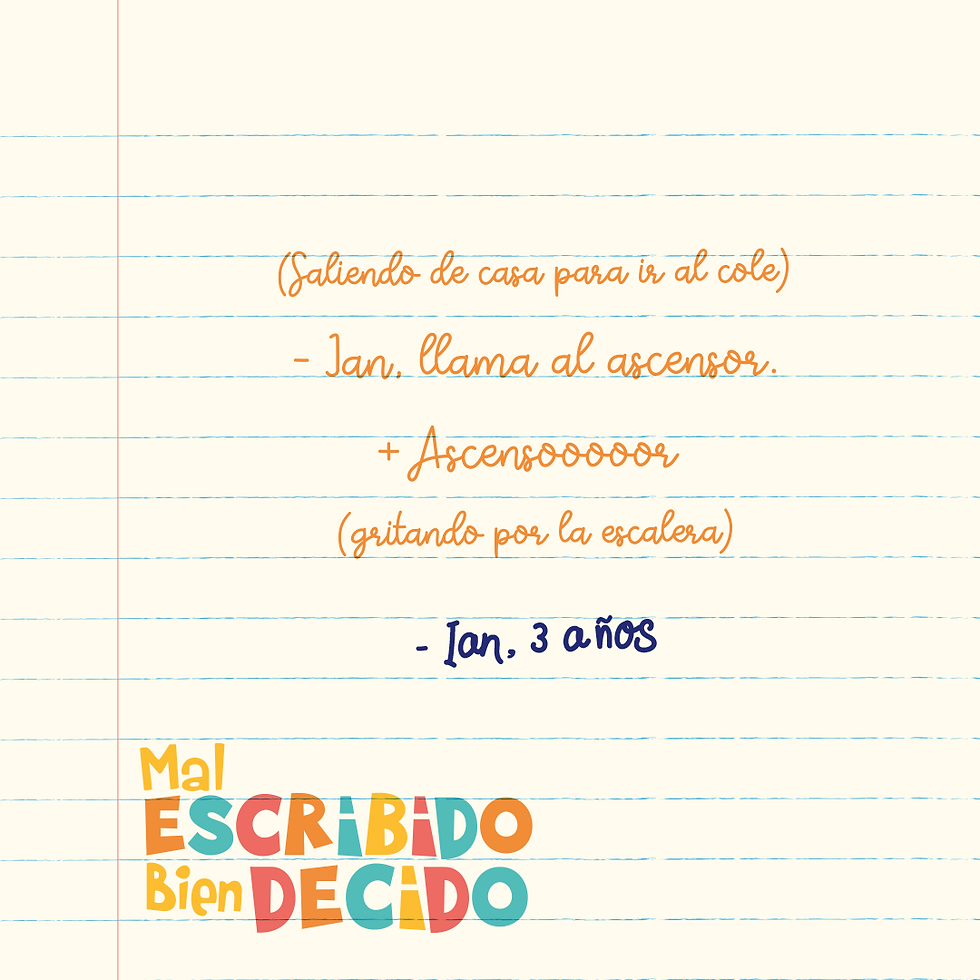 (Saliendo de casa para ir al cole)
- Ian, llama al ascensor.
+ Ascensooooor
(gritando por la escalera)
- Ian, 3 años
Mal
ESCRiBiDO
Bien DECiDO